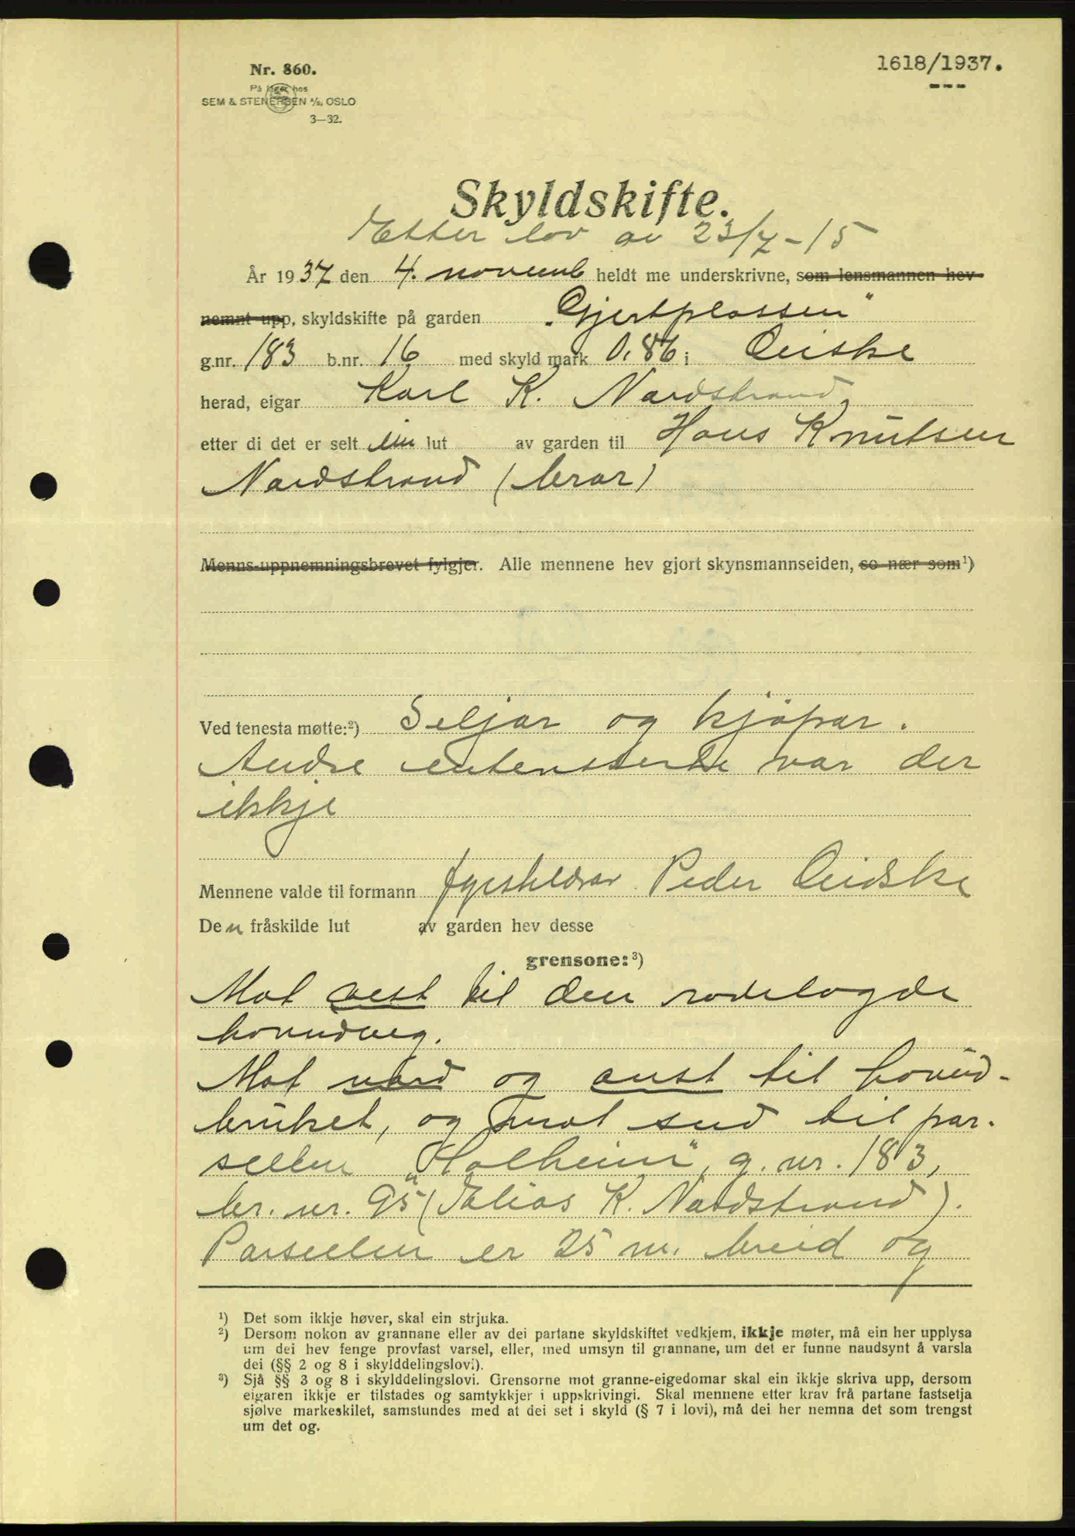 1618/1937.
Nr. 860.
På lager hos
SEM & STENERSEN A/S, OSLO
3—32.
Skyldskifte.
Etter lov av 23/7-15
År 1937 den 4. novemb heldt me underskrivne, som lensmannen hev
nemnt upp, skyldskifte på garden "Gjertplassen"
g.nr. 183 b.nr. 16 med skyld mark 0,86 i Giske
herad, eigar Karl K. Nordstrand,
etter di det er selt ein lut av garden til Hans Knutsen
Nordstrand (bror)
Menns-uppnemningsbrevet fylgjer. Alle mennene hev gjort skynsmannseiden, so nær som ¹)
Ved tenesta møtte: ²) Seljar og kjøpar.
Andre var der
ikkje
Mennene valde til formann Peder
Den fråskilde lut av garden hev desse
grensone: ³)
Mot vest til den rodelagde
hovudveg.
Mot nord og aust til hovud-
bruket, og mot sud til par-
sellen "Solheim", g. nr. 183,
br. nr. 95 (Elias K. Nordstrand).
Parsellen er 25 m. breid og
¹) Det som ikkje høver, skal ein strjuka.
²) Dersom nokon av grannane eller av dei partane skyldskiftet vedkjem, ikkje møter, må ein her upplysa
um dei hev fenge provfast varsel, eller, med umsyn til grannane, um det er funne naudsynt å varsla
dei (§§ 2 og 8 i skylddelingslovi).
³) Sjå §§ 3 og 8 i skylddelingslovi. Grensorne mot granne-eigedomar skal ein ikkje skriva upp, dersom
eigaren ikkje er tilstades og samtykkjer i uppskrivingi. Skal mennene etter krav frå partane fastsetja
sjølve markeskilet, samstundes med at dei set i skyld (§ 7 i lovi), må dei her nemna det som trengst
um det og.